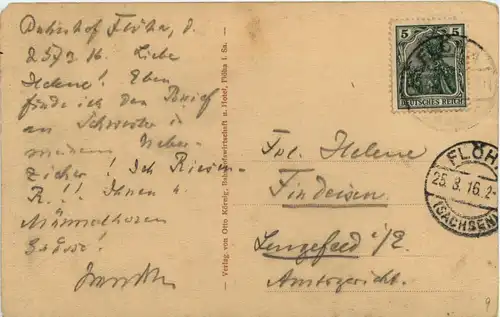 Bahnhof Flöha, d.
25/3 16. Liebe
Helene! Eben
finde ich den Brief
an Schwester in
meinem Ueber-
zieher! Ich Riesen-
R.!!! Ihnen u.
Grüsse!
Verlag von Otto Körnig, Bahnhofswirtschaft u. Hotel, Flöha i. Sa.
5 5
DEUTSCHES REICH
FLÖH
25.3.16.2-
(SACHSEN)
Frl. Helene
Findeisen
Lengefeld i/E.
Amtsgericht.